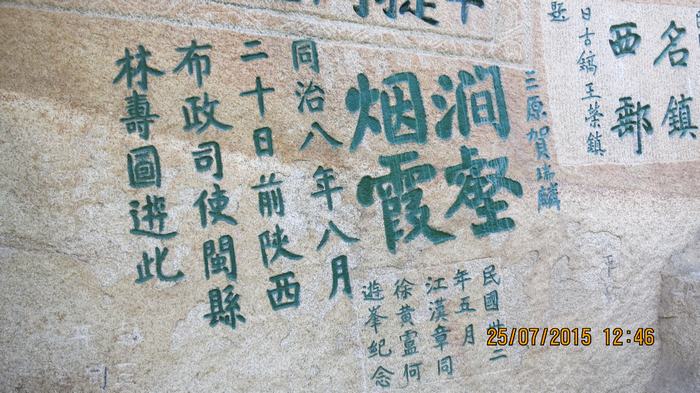 名鎮
西郵
日古鏑王榮鎮
題
三原賀瑞麟
澗壑
烟霞
民國卅二
年五月
江漢章同
徐黄靈何
遊峯紀念
同治八年八月
二十日前陝西
布政司使閩縣
林壽圖遊此
25/07/2015 12:46